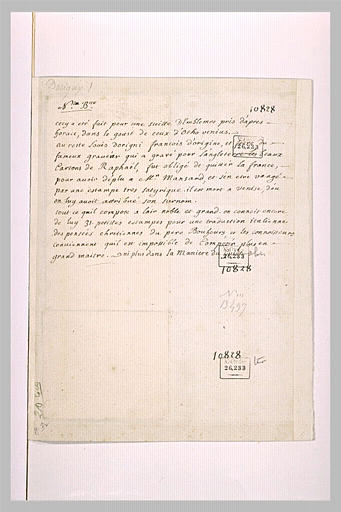 Dorigny
N.^lle B^re
10828
cecy a été fait pour une suitte d'Emblemes pris d'apres
horace, dans le goust de ceux d'Otho venius.
au reste Louis Dorigni francois d'origine, et
fameux graveur qui a gravé pour l'angleterre les beaux
Cartons de Raphaël, fut obligé de quitter la france,
pour avoir déplu a M.^r Mansard et s'en etre vangé
par une estampe tres satyrique. il est mort a venise, d'ou
on luy avoit attribué son surnom.
tout ce qu'il compose a l'air noble et grand. on connoit encore
de luy 31. petites estampes pour une traduction italienne
des pensées chretiennes du pere Bouhours et les connoisseurs
conviennent qu'il est impossible de composer plus en
grand maitre. ni plus dans la maniere du
26,233
10828
N III
13497
10828
26,233